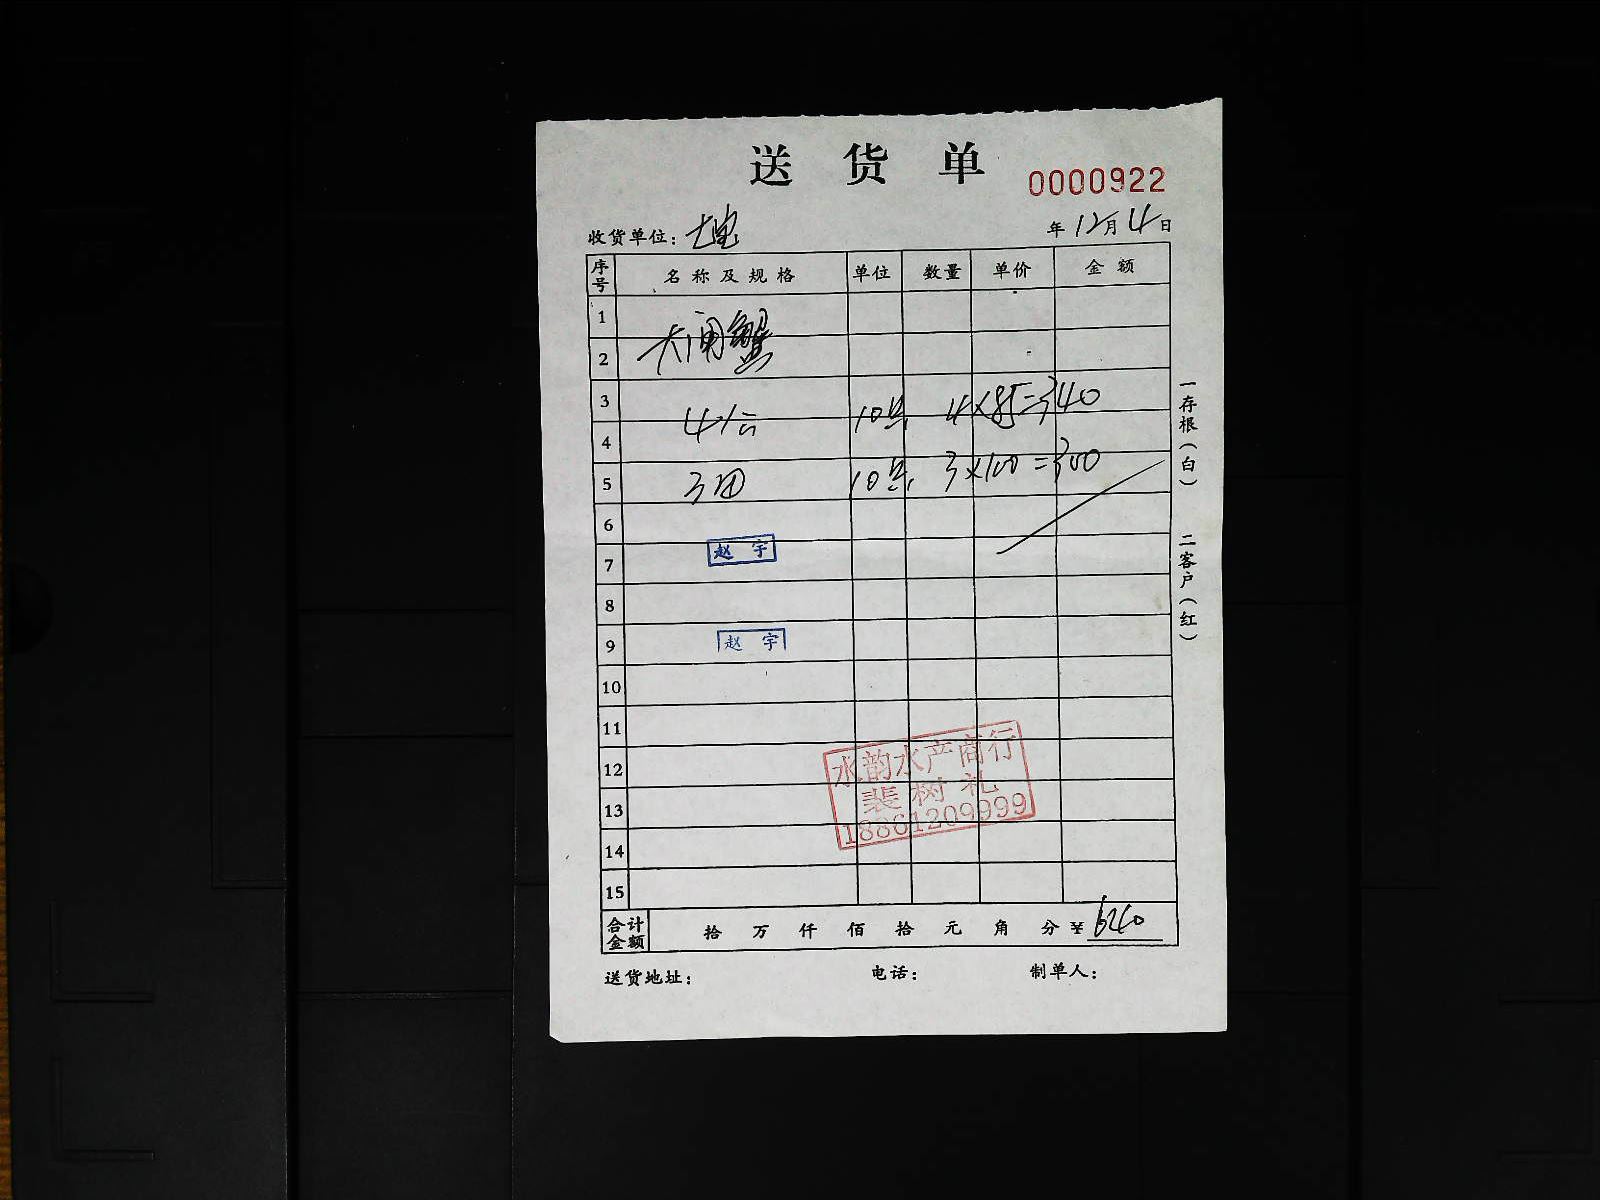 送货单
0000922
收货单位： 年12月4日
序号 名称及规格 单位 数量 单价 金额
1
大闸蟹
2
3
4 10只 4×85=340
4
5 3团 10只 3×100=300
6
7 赵宇
8
9 赵宇
10
11
12
13
14
15
水韵水产商行
裴树礼
18861209999
合计金额 拾 万 仟 佰 拾 元 角 分 ￥640
送货地址： 电话： 制单人：
一存根（白）
二客户（红）